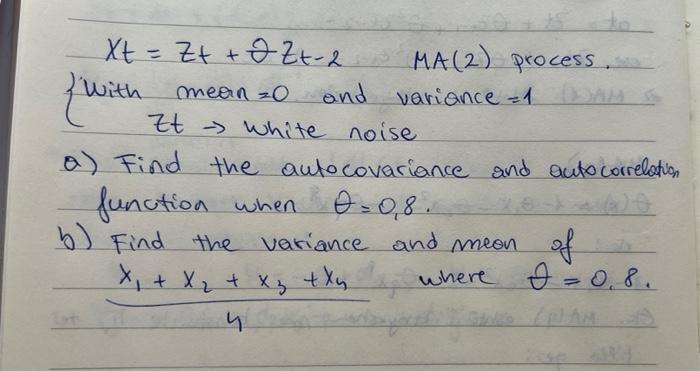 Xt = Zt + θ Zt-2 MA(2) process.
{With mean=0 and variance=1
Zt → white noise
a) Find the autocovariance and autocorrelation
function when θ=0,8.
b) Find the variance and mean of
X1 + X2 + X3 + X4 where θ = 0.8.
4